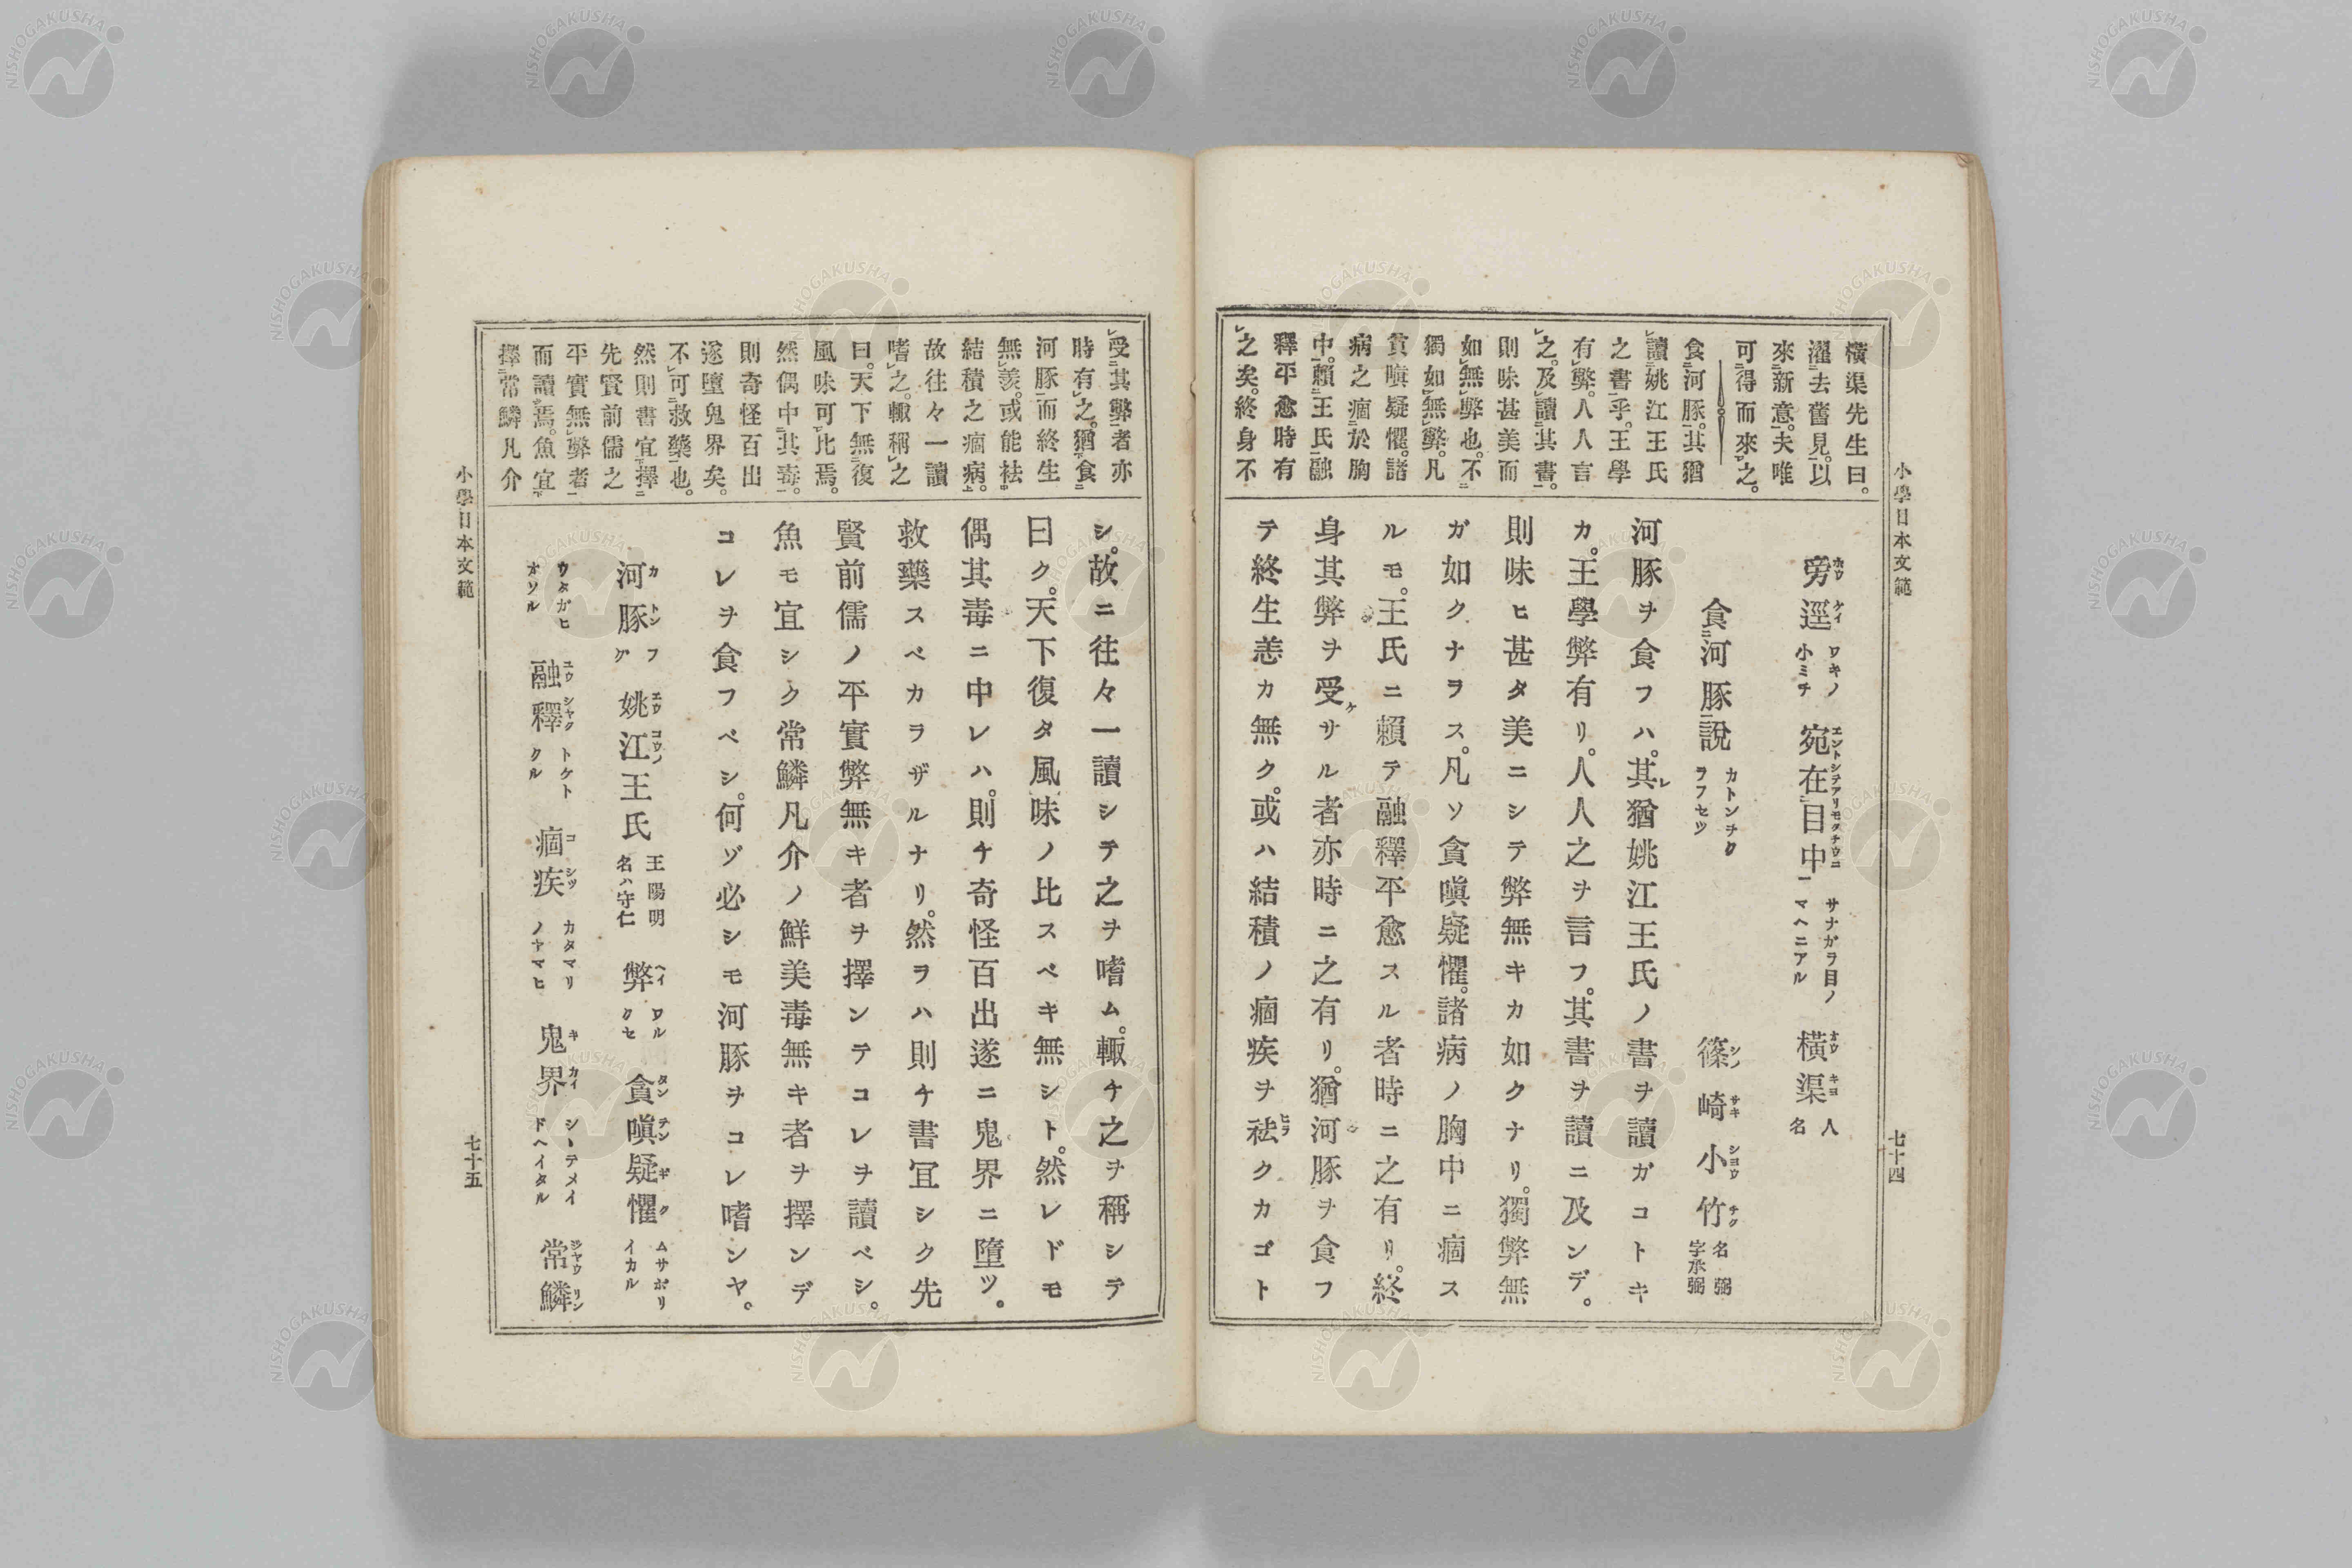 小學日本文範
七十四
橫渠先生曰。
濯去舊見。以
來新意。夫唯
可得而來之。
食河豚。其猶
讀姚江王氏
之書乎。王學
有弊。人人言
之。及讀其書。
則味甚美而
如無弊也。不
獨如無弊。凡
貪嗔疑懼。諸
病之痼於胸
中。賴王氏融
釋平愈時有
之矣。終身不
旁逕 ワキノ小ミチ 宛在目中 サナガラ目ノマヘニアル 橫渠 人名
食河豚說 カトンヲクラフセツ 篠崎小竹 名弼字承弼
河豚ヲ食フハ。其レ猶姚江王氏ノ書ヲ讀ガコトキ
カ。王學弊有リ。人人之ヲ言フ。其書ヲ讀ニ及ンデ。
則味ヒ甚タ美ニシテ弊無キカ如クナリ。獨弊無
ガ如クナヲス。凡ソ貪嗔疑懼。諸病ノ胸中ニ痼ス
ルモ。王氏ニ賴テ融釋平愈スル者時ニ之有リ。終
身其弊ヲ受ケサル者亦時ニ之有リ。猶河豚ヲ食フ
テ終生恙カ無ク。或ハ結積ノ痼疾ヲ祛クカゴト
受其弊者亦
時有之。猶食
河豚而終生
無羨。或能祛
結積之痼病。
故往々一讀
嗜之。輙稱之
曰。天下無復
風味可比焉。
然偶中其毒。
則奇怪百出
遂墮鬼界矣。
不可救藥也。
然則書宜擇
先賢前儒之
平實無弊者
而讀焉。魚宜
擇常鱗凡介
シ。故ニ往々一讀シテ之ヲ嗜ム。輙チ之ヲ稱シテ
曰ク。天下復タ風味ノ比スベキ無シト。然レドモ
偶其毒ニ中レハ。則チ奇怪百出遂ニ鬼界ニ墮ツ。
救藥スベカラザルナリ。然ヲハ則チ書宜シク先
賢前儒ノ平實弊無キ者ヲ擇ンテコレヲ讀ベシ。
魚モ宜シク常鱗凡介ノ鮮美毒無キ者ヲ擇ンデ
コレヲ食フベシ。何ゾ必シモ河豚ヲコレ嗜ンヤ。
河豚 フグ 姚江王氏 王陽明名ハ守仁 弊 ワルクセ 貪嗔疑懼 ムサボリイカル
ウタガヒオソル 融釋 トケトクル 痼疾 カタマリノヤマヒ 鬼界 シヽテメイドヘイタル 常鱗
小學日本文範
七十五